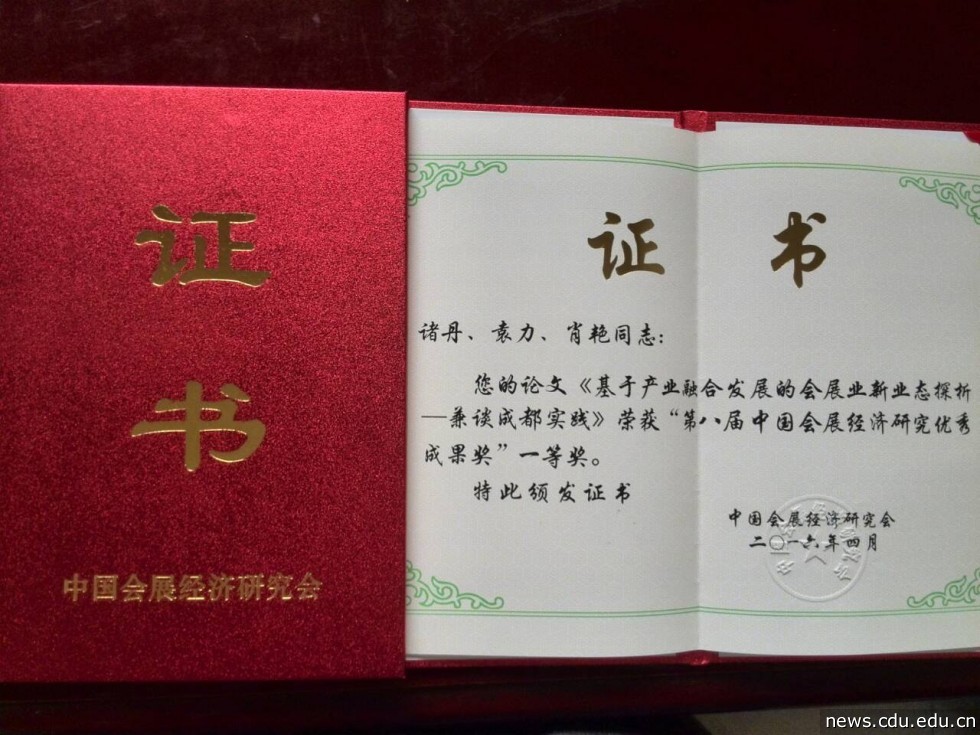 证
书
中国会展经济研究会
证 书
诸丹、袁力、肖艳同志:
您的论文《基于产业融合发展的会展业新业态探析
—兼谈成都实践》荣获“第八届中国会展经济研究优秀
成果奖”一等奖。
特此颁发证书
中国会展经济研究会
二〇一六年四月
news.cdu.edu.cn